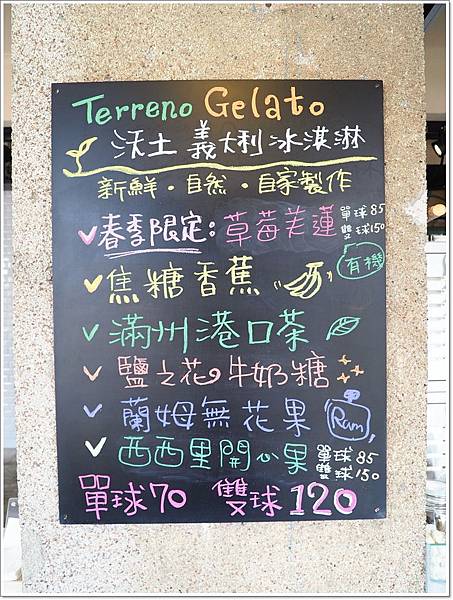 Terreno Gelato
沃土 義大利冰淇淋
新鮮・自然・自家製作
春季限定:草莓芙蓮 單球85
雙球150
焦糖香蕉 有機
滿州港口茶
鹽之花牛奶糖
蘭姆無花果 Rum
西西里開心果 單球85
雙球150
單球70 雙球120